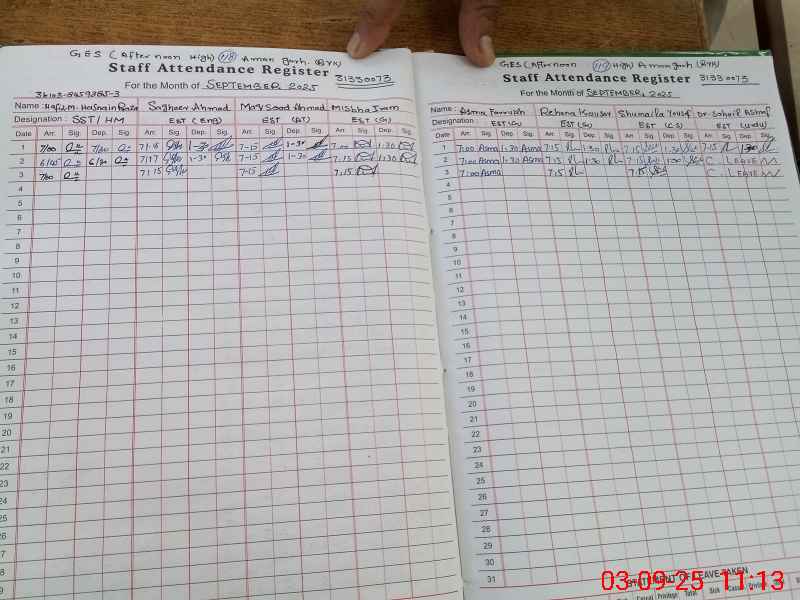 GES (Afternoon High) 118 Aman Garh. (RYK)
Staff Attendance Register 31330073
For the Month of SEPTEMBER 2025
Name: Hafiz M. Hasnain Raza Sagheer Ahmad Moly Saad Ahmad Misbha Iram
Designation: SST/HM EST (ENG) EST (AT) EST (G)
Date Arr. Sig. Dep. Sig. Arr. Sig. Dep. Sig. Arr. Sig. Dep. Sig. Arr. Sig. Dep. Sig.
1 7/00 7/30 7:15 1-30 7-15 1-30 7:00 1:30
2 6/45 6/30 7:17 1-30 7-15 1-30 7:15 1:30
3 7/00 7:15 7-15 7:15
4
5
6
7
8
9
10
11
12
13
14
15
16
17
18
19
20
21
22
23
24
25
26
GES (Afternoon 119 High) Aman garh (RYK)
Staff Attendance Register 31330073
For the Month of SEPTEMBER, 2025
Name: Asma Farrukh Rehana Kausar Shumaila Yousaf Dr. Sohail Ashraf
Designation EST (G) EST (G) EST (CS) EST (Urdu)
Date Arr. Sig Dep. Sig. Arr. Sig Dep. Sig. Arr. Sig. Dep. Sig. Arr. Sig. Dep. Sig.
1 7:00 Asma 1:30 Asma 7:15 1:30 7:15 1:30 7-15 1:30
2 7:00 Asma 1:30 Asma 7:15 1:30 7:15 1:00 C. LEAVE
3 7:00 Asma 7:15 7:15 C. LEAVE
4
5
6
7
8
9
10
11
12
13
14
15
16
17
18
19
20
21
22
23
24
25
26
27
28
29
30
31
STATEMENT OF LEAVE TAKEN
03-09-25 11:13